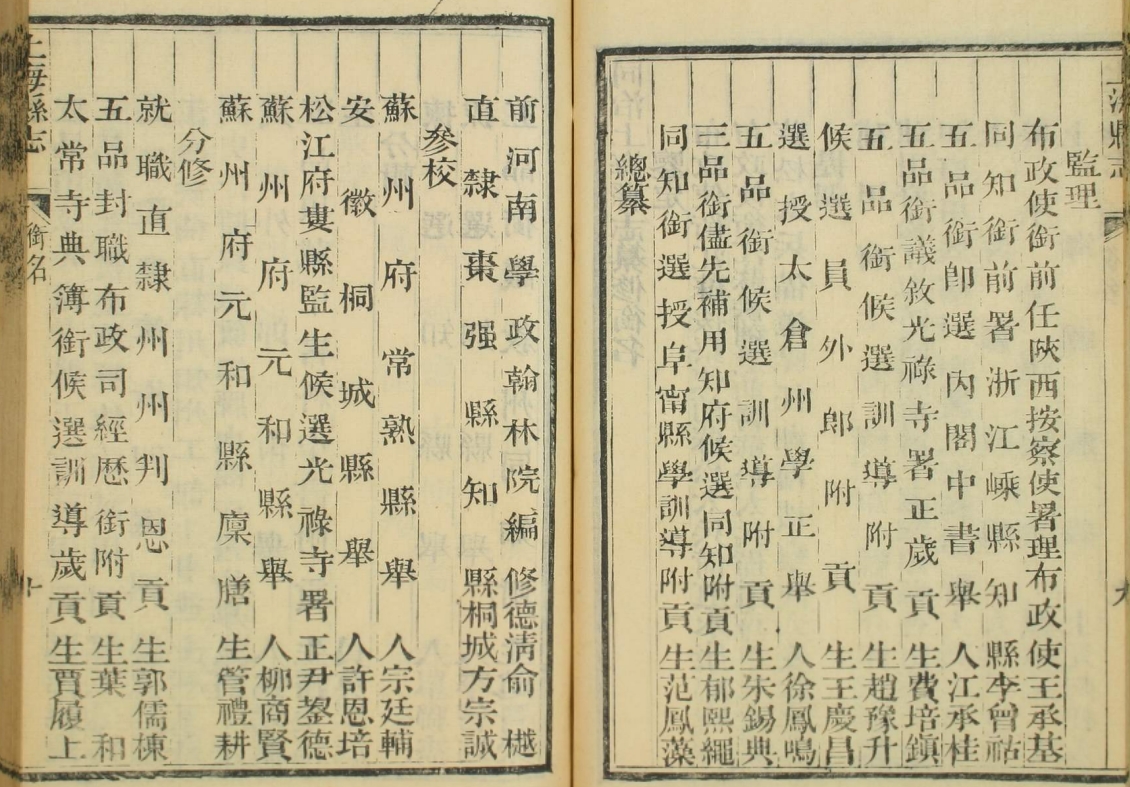 上海縣志
監理
布政使銜前任陝西按察使署理布政使王承基
同知銜前署浙江嵊縣知縣李曾祜
五品銜卽選內閣中書舉人江承桂
五品銜議敘光祿寺署正歲貢生費培鎮
五品銜候選訓導附貢生趙豫升
候選員外郎附貢生王慶昌
選授太倉州學正舉人徐鳳鳴
五品銜候選訓導附貢生朱錫典
三品銜儘先補用知府候選同知附貢生郁熙繩
同知銜選授阜甯縣學訓導附貢生范鳳藻
總纂
前河南學政翰林院編修德清俞樾
直隸棗强縣知縣桐城方宗誠
參校
蘇州府常熟縣舉人宗廷輔
安徽桐城縣舉人許恩培
松江府婁縣監生候選光祿寺署正尹鋆德
蘇州府元和縣舉人柳商賢
蘇州府元和縣廩膳生管禮耕
分修
就職直隸州州判恩貢生郭儒棟
五品封職布政司經歷銜附貢生葉和
太常寺典簿銜候選訓導歲貢生賈履上
上海縣志
銜名
十